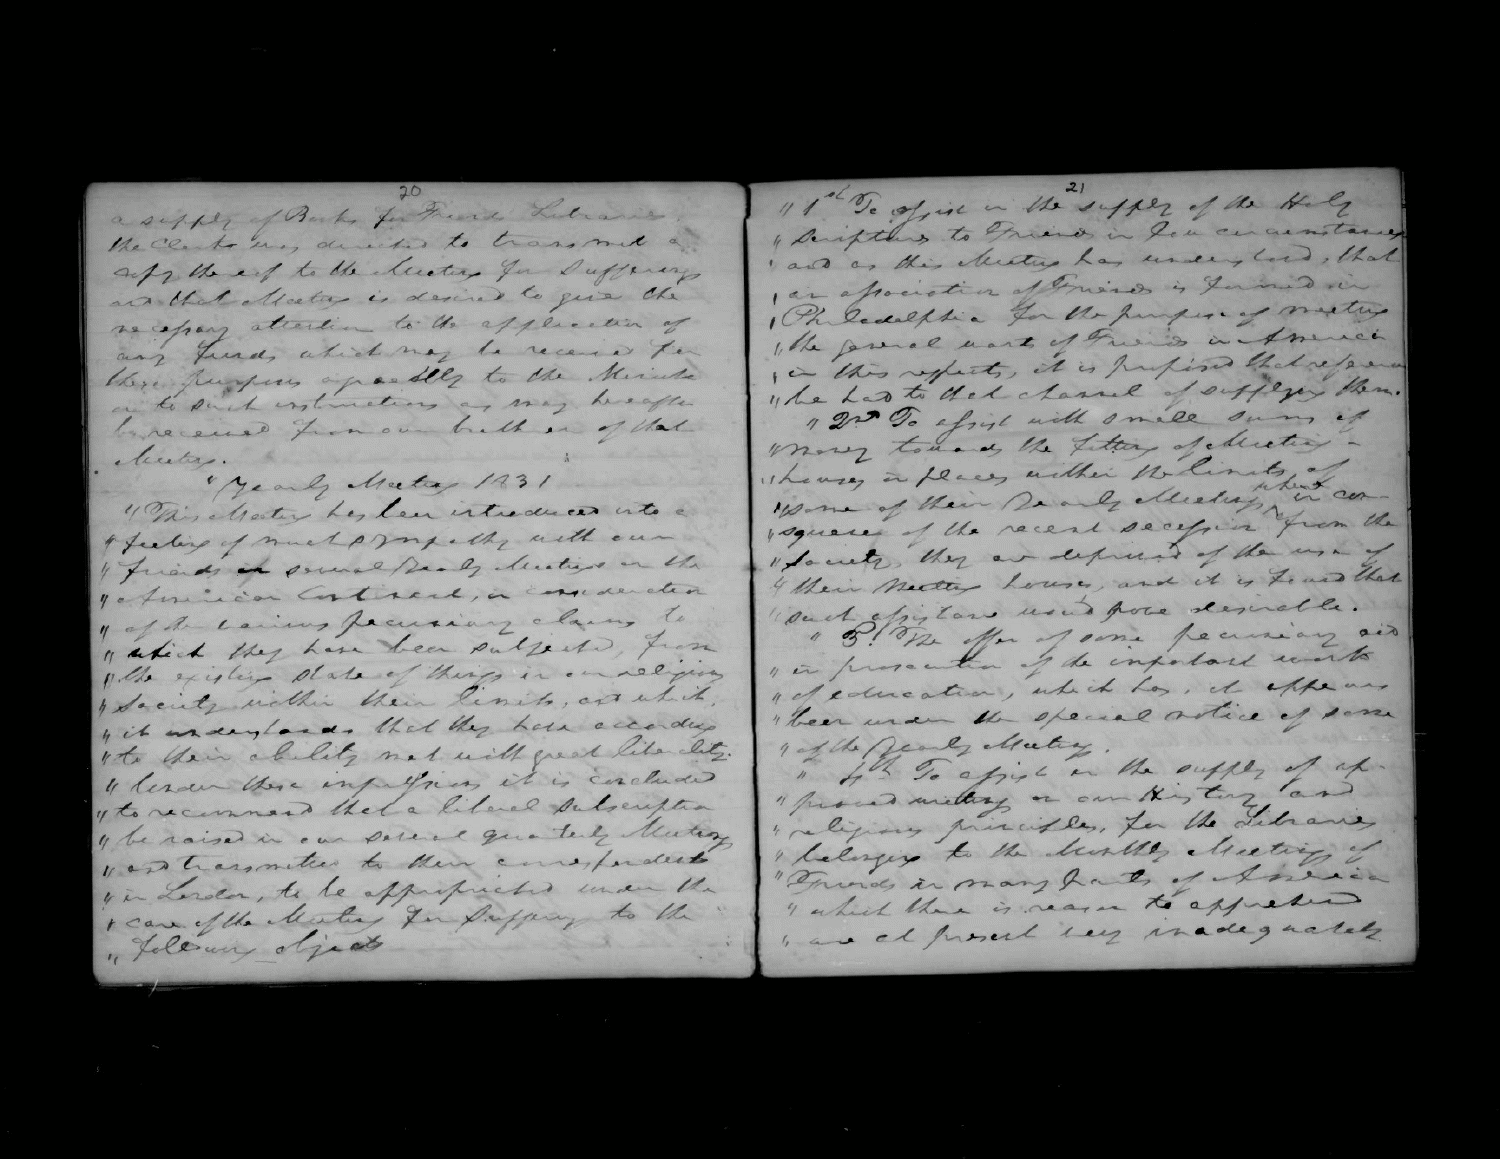 20
a supply of Books for Friends Libraries.
the Clerk was directed to transmit a
copy thereof to the Meeting for Sufferings
and that Meeting is desired to give the
necessary attention to the application of
any funds which may be received for
these purposes agreeably to the Minute
or to such instructions as may hereafter
be received from our brethren of that
Meeting.
" Yearly Meeting 1831
" This Meeting has been introduced into a
" feeling of much sympathy with our
" friends in several Yearly Meetings on the
" American Continent, in consideration
" of the various pecuniary claims to
" which they have been subjected, from
" the existing state of things in our religious
" Society within their limits, and which,
" it understands that they have according
" to their ability met with great liberality.
" Under these impressions it is concluded
" to recommend that a liberal subscription
" be raised in our several quarterly Meetings
" and transmitted to their correspondents
" in London, to be appropriated under the
" care of the Meeting for Sufferings to the
" following objects
21
" 1st To assist in the supply of the Holy
" Scriptures to Friends in low circumstances
" and as this Meeting has understood, that
" an association of Friends is formed in
" Philadelphia for the purpose of meeting
" the general wants of Friends in America
" in this respects, it is proposed that reference
" be had to that channel of supplying them.
" 2nd To assist with small sums of
" money towards the fitting of Meeting -
" houses in places within the limits of
" some of their Yearly Meetings where in con-
" sequence of the recent secession from the
" Society, they are deprived of the use of
" their Meeting houses, and it is found that
" such assistance would prove desirable.
" 3d The offer of some pecuniary aid
" in prosecution of the important work
" of education, which has, it appears
" been under the special notice of some
" of the Yearly Meetings.
" 4th To assist in the supply of ap-
" proved writings on our History and
" religious principles, for the Libraries
" belonging to the Monthly Meetings of
" Friends in many parts of America
" which there is reason to apprehend
" are at present very inadequately